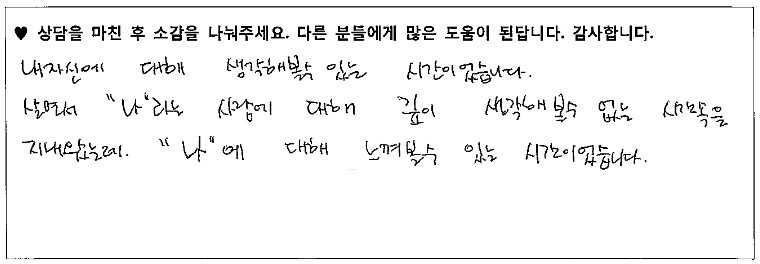 ♥ 상담을 마친 후 소감을 나눠주세요. 다른 분들에게 많은 도움이 된답니다. 감사합니다.
내자신에 대해 생각해볼수 있는 시간이었습니다.
살면서 "나"라는 사람에 대해 깊이 생각해 볼수 없는 시간속을
지내왔는데. "나"에 대해 느껴볼수 있는 시간이었습니다.